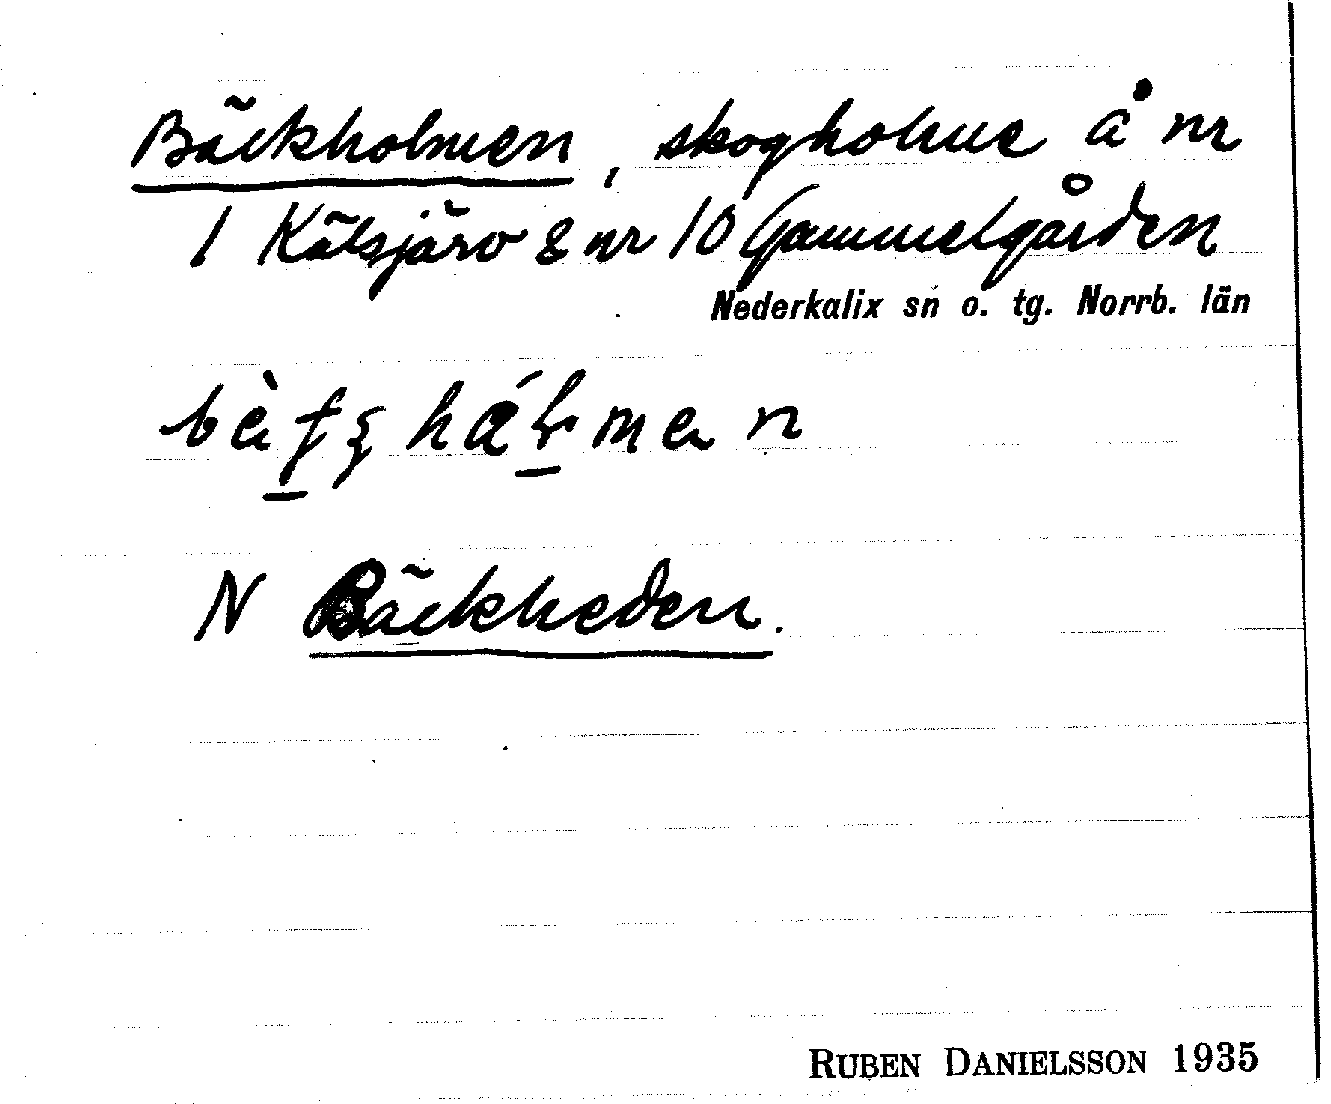 Bäckholmen, skogholme å nr
1 Kälsjärv & nr 10 Gammelgården
Nederkalix sn o. tg. Norrb. län
N Bäckheden.
RUBEN DANIELSSON 1935